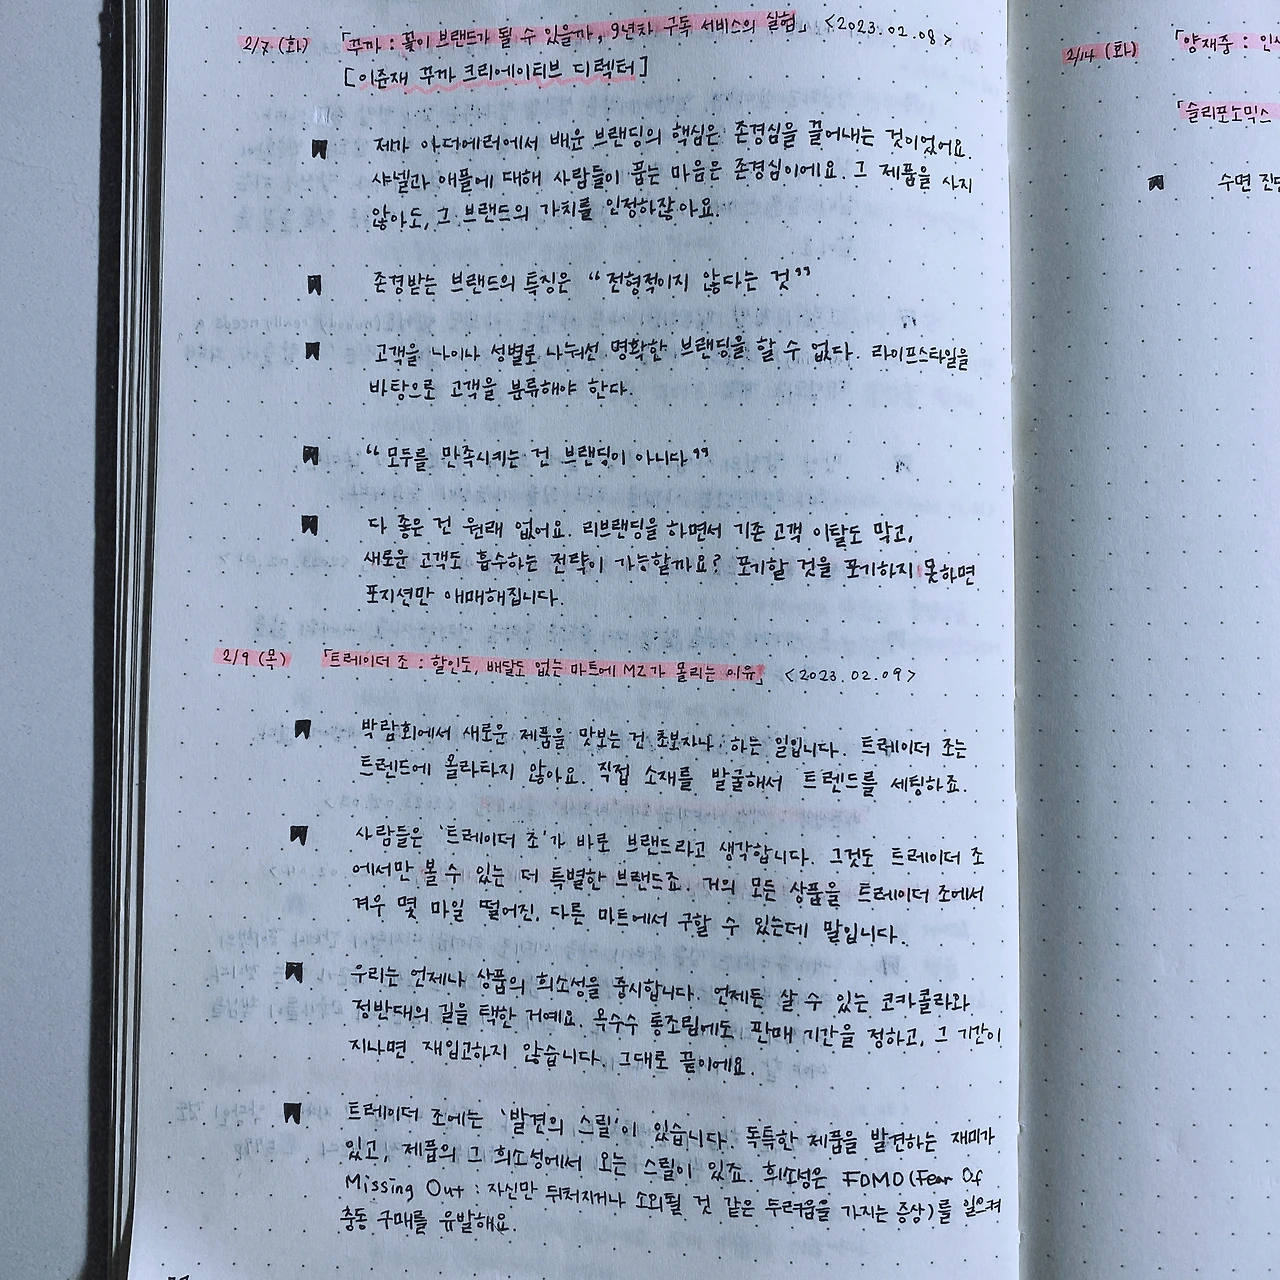 2/7 (화) 「꾸까 : 꽃이 브랜드가 될 수 있을까, 9년차 구독 서비스의 실험」 <2023.02.08>
[이준재 꾸까 크리에이티브 디렉터]
제가 아더에러에서 배운 브랜딩의 핵심은 존경심을 끌어내는 것이었어요.
샤넬과 애플에 대해 사람들이 품는 마음은 존경심이에요. 그 제품을 사지
않아도, 그 브랜드의 가치를 인정하잖아요.
존경받는 브랜드의 특징은 “전형적이지 않다는 것”
고객을 나이나 성별로 나눠선 명확한 브랜딩을 할 수 없다. 라이프스타일을
바탕으로 고객을 분류해야 한다.
“모두를 만족시키는 건 브랜딩이 아니다”
다 좋은 건 원래 없어요. 리브랜딩을 하면서 기존 고객 이탈도 막고,
새로운 고객도 흡수하는 전략이 가능할까요? 포기할 것을 포기하지 못하면
포지션만 애매해집니다.
2/9 (목) 「트레이더 조 : 할인도, 배달도 없는 마트에 MZ가 몰리는 이유」 <2023.02.09>
박람회에서 새로운 제품을 맛보는 건 초보자나 하는 일입니다. 트레이더 조는
트렌드에 올라타지 않아요. 직접 소재를 발굴해서 트렌드를 세팅하죠.
사람들은 '트레이더 조'가 바로 브랜드라고 생각합니다. 그것도 트레이더 조
에서만 볼 수 있는 더 특별한 브랜드죠. 거의 모든 상품을 트레이더 조에서
겨우 몇 마일 떨어진, 다른 마트에서 구할 수 있는데 말입니다.
우리는 언제나 상품의 희소성을 중시합니다. 언제든 살 수 있는 코카콜라와
정반대의 길을 택한 거예요. 옥수수 통조림에도 판매 기간을 정하고, 그 기간이
지나면 재입고하지 않습니다. 그대로 끝이에요.
트레이더 조에는 '발견의 스릴'이 있습니다. 독특한 제품을 발견하는 재미가
있고, 제품의 그 희소성에서 오는 스릴이 있죠. 희소성은 FOMO(Fear Of
Missing Out : 자신만 뒤처지거나 소외될 것 같은 두려움을 가지는 증상)를 일으켜
충동 구매를 유발해요.
2/14 (화) 「양재중 : 인
「슬리포노믹스
수면 진단